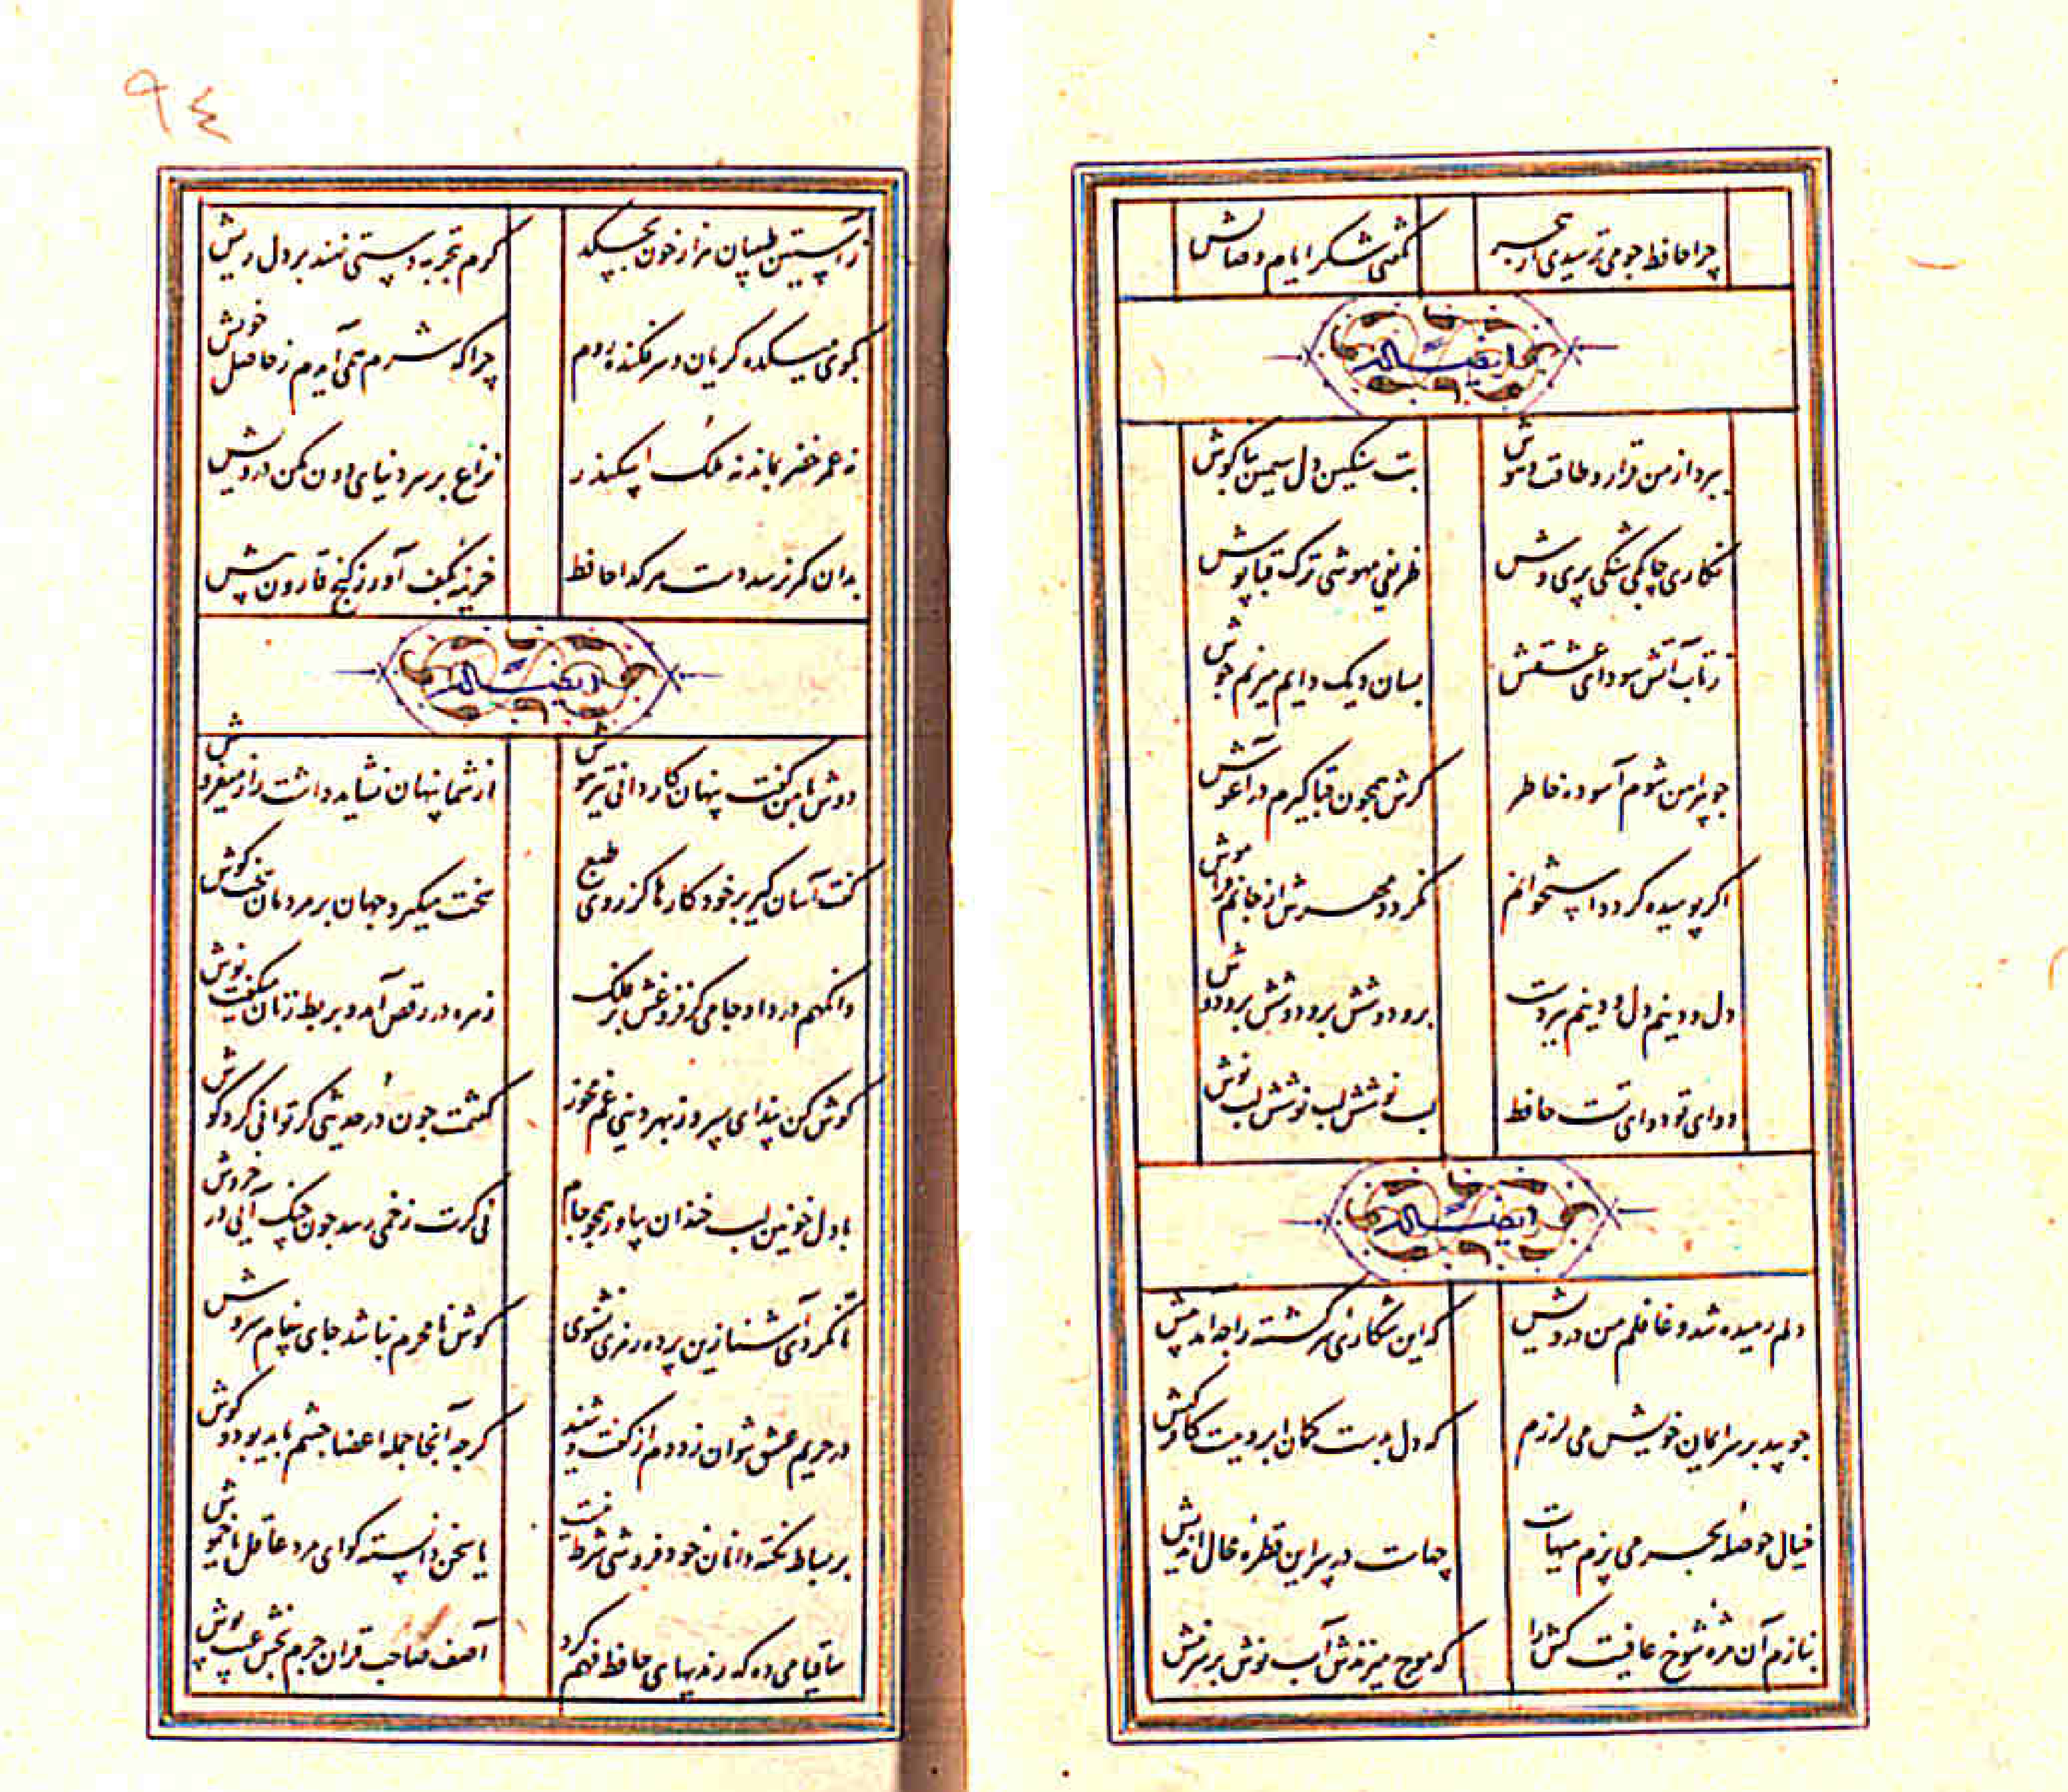 چرا حافظ چو می ترسیدی از هجر
نکردی شکر ایام وصالش
ایضاً له
ببرد از من قرار و طاقت و هوش
بت سنگین دل سیمین بناگوش
نگاری چابکی شنگی پری وش
ظریفی مهوشی ترک قباپوش
زتاب آتش سودای عشقش
بسان دیک دایم میزنم جوش
جو پیراهن شوم آسوده خاطر
کرش همچون قبا کیرم در آغوش
اکر پوسیده کردد استخوانم
نکردد مهرش از جانم فراموش
دل و دینم دل و دینم ببردست
بر و دوشش بر و دوشش بر و دوش
دوای تو دوای تست حافظ
لب نوشش لب نوشش لب نوش
ایضاً له
دلم رمیده شد و غافلم من درویش
که این شکاری سرکشته را جه آمد پیش
جو بید بر سر ایمان خویش می لرزم
که دل بدست کمان ابرویست کافر کیش
خیال حوصله بحر می پزم هیهات
جهاست در سر این قطره محال اندیش
بنازم آن مژه شوخ عافیت کش را
که موج میزندش آب نوش بر سر نیش
۹٤
ز آستین طبیبان هزار خون بچکد
کرم تجربه دستی نهند بر دل ریش
بکوی میکده کریان و سرفکنده روم
چرا که شرم همی آیدم ز حاصل خویش
نه عمر خضر بماند نه ملک اسکندر
نزاع بر سر دنیای دون مکن درویش
بدان کمر نرسد دست هر کدا حافظ
خزینهٔ بکف آور ز کنج قارون بیش
ایضاً له
دوش با من کفت پنهان کاردانی تیزهوش
از شما پنهان نشاید داشت راز میفروش
کفت آسان کیر بر خود کارها کز روی طبع
سخت میکیرد جهان بر مردمان سخت کوش
وانکهم در داد جامی کز فروغش بر فلک
زهره در رقص آمد و بربط زنان میکفت نوش
کوش کن پند ای پسر وز بهر دنیی غم مخور
کفتمت جون در حدیثی کر توانی کرد کوش
با دل خونین لب خندان بیاور همجو جام
نی کرت زخمی رسد جون جنک آیی در خروش
تا نکردی آشنا زین پرده رمزی نشنوی
کوش نامحرم نباشد جای پیغام سروش
در حریم عشق نتوان زد دم از کفت و شنید
کرجه آنجا جمله اعضا جشم باید بود و کوش
بر بساط نکته دانان خود فروشی شرط نیست
یا سخن دانسته کو ای مرد عاقل یا خموش
ساقیا می ده که رندیهای حافظ فهم کرد
آصف صاحب قران جرم بخش عیب پوش